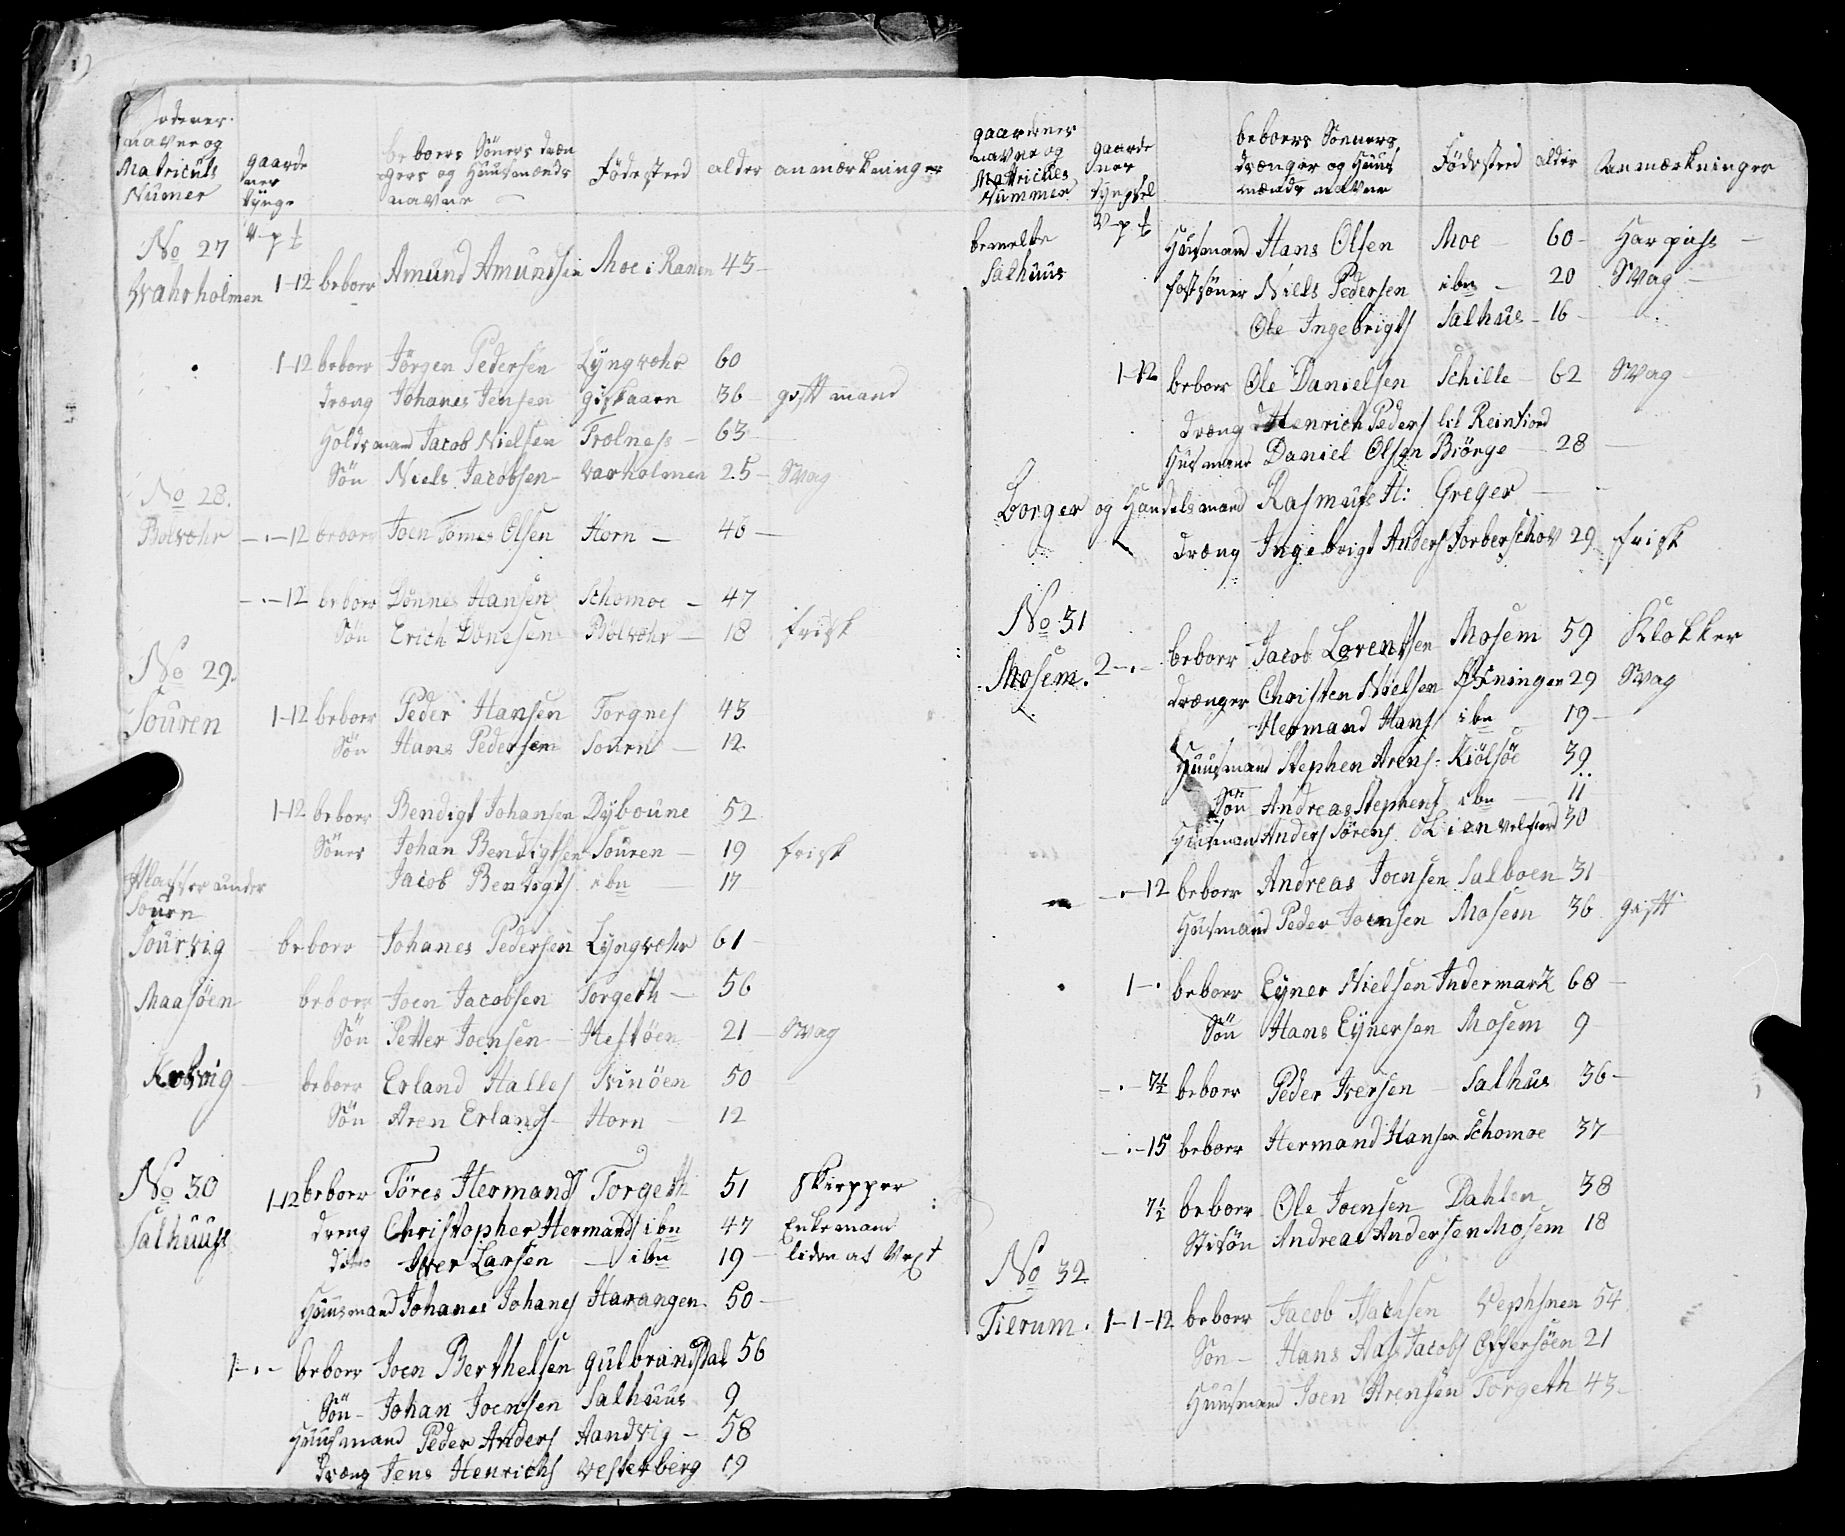 navne og
Matriculs
Numer
gaarde
ner
tynge
V - p
beboers Söners dræn
gers og Huusmænds
navne
Födested
alder
anmærkninger
No 27
Vahrholmen 1-12 beboer Amund Amundsen Moe i Ranen 43
1-12 beboer Jörgen Pedersen Lyngvæhr 60
dræng Johanes Jensen Giskaarn 36 gift mand
Holdsmand Jacob Nielsen Trolness 63
Sön Niels Jacobsen Varholmen 25 Svag
No 28.
Bolvæhr - . - 12 beboer Joen Tomes Olsen Horn 46
- . - 12 beboer Dönnes Hansen Schomoe 47
Sön Erich Dönesen Bolvæhr 18 frisk
No 29.
Souren 1-12 beboer Peder Hansen Torgnes 43
Sön Hans Pedersen Sourn 12
1-12 beboer Bendigt Johansen Dyboune 52
Söner Johan Bendigtsen Souren 19 frisk
Jacob Bendigts ibn 17
Plasser under
Sourn
Sourvig beboer Johanes Pedersen Lyngvæhr 61
Maasöen beboer Joen Jacobsen Torgeth 56
Sön Petter Joensen Hestöen 21 Svag
beboer Erland Halles Svinöen 50
Sön Aren Erlands Horn 12
No 30
Salhuus 1-12 beboer Töres Hermands Torgeth 51 Skiepper
dreng Christopher Hermands ibn 47 Enkemand
ditto Iver Larsen ibn 19 liden af Vext
Huusmand Johanes Johanes Havangen 50
1 - . - beboer Joen Berthelsen gulbrandsdal 56
Sön Johan Joensen Salhuus 9
Huusmand Peder Anders Aandvig 58
Dræng Jens Henrichs Vesterberg 19
gaardenes
navne og
Matricules
Nummer
gaarde
ner
tyngsel
V - p
beboers Sönners,
drænger og Huus
mænds navne
Födested
alder
Anmærkninger
bemelte
Salhuus
Huusmand Hans Olsen Moe 60 Har pass
fostsöner Niels Pedersen ibn 20 Svag
Ole Ingebrigts Salhus 16
1-12 beboer Ole Danielsen Schille 62 Svag
dræng Henrich Peders lil Reinfiord
Husmand Daniel Olsen Biörge 28
Borger og Handelsmand Rasmus H: Greger
dræng Ingebrigt Anders Torberschov 29 frisk
No 31
Mosem. 2 - . - beboer Jacob Lorentsen Mosem 59 Klokker
drænger Christen Nielsen 29 Svag
Hermand Hans ibn 19
Huusmand Stephen Arens Kiölsöe 39
Sön Andreas Stephens ibn 11
Husmand Anders Sörens velfiord 30
- . - 12 beboer Andreas Joensen Salboen 31
Husmand Peder Joensen Mosem 36 gift
1 - . beboer Eyner Nielsen Indermark 68
Sön Hans Eynersen Mosem 9
- . - 7½ beboer Peder Iversen Salhus 36
- . - 15 beboer Hermand Hansen Schomoe 37
7½ beboer Ole Joensen Dahlen 38
Stisön Andreas Andersen Mosem 18
No 32
Tilrum. 1-1-12 beboer Jacob Vephsnen 54
Son Hans Jacobs Offersöen 21
Huusmand Joen Arensen Torgeth 43